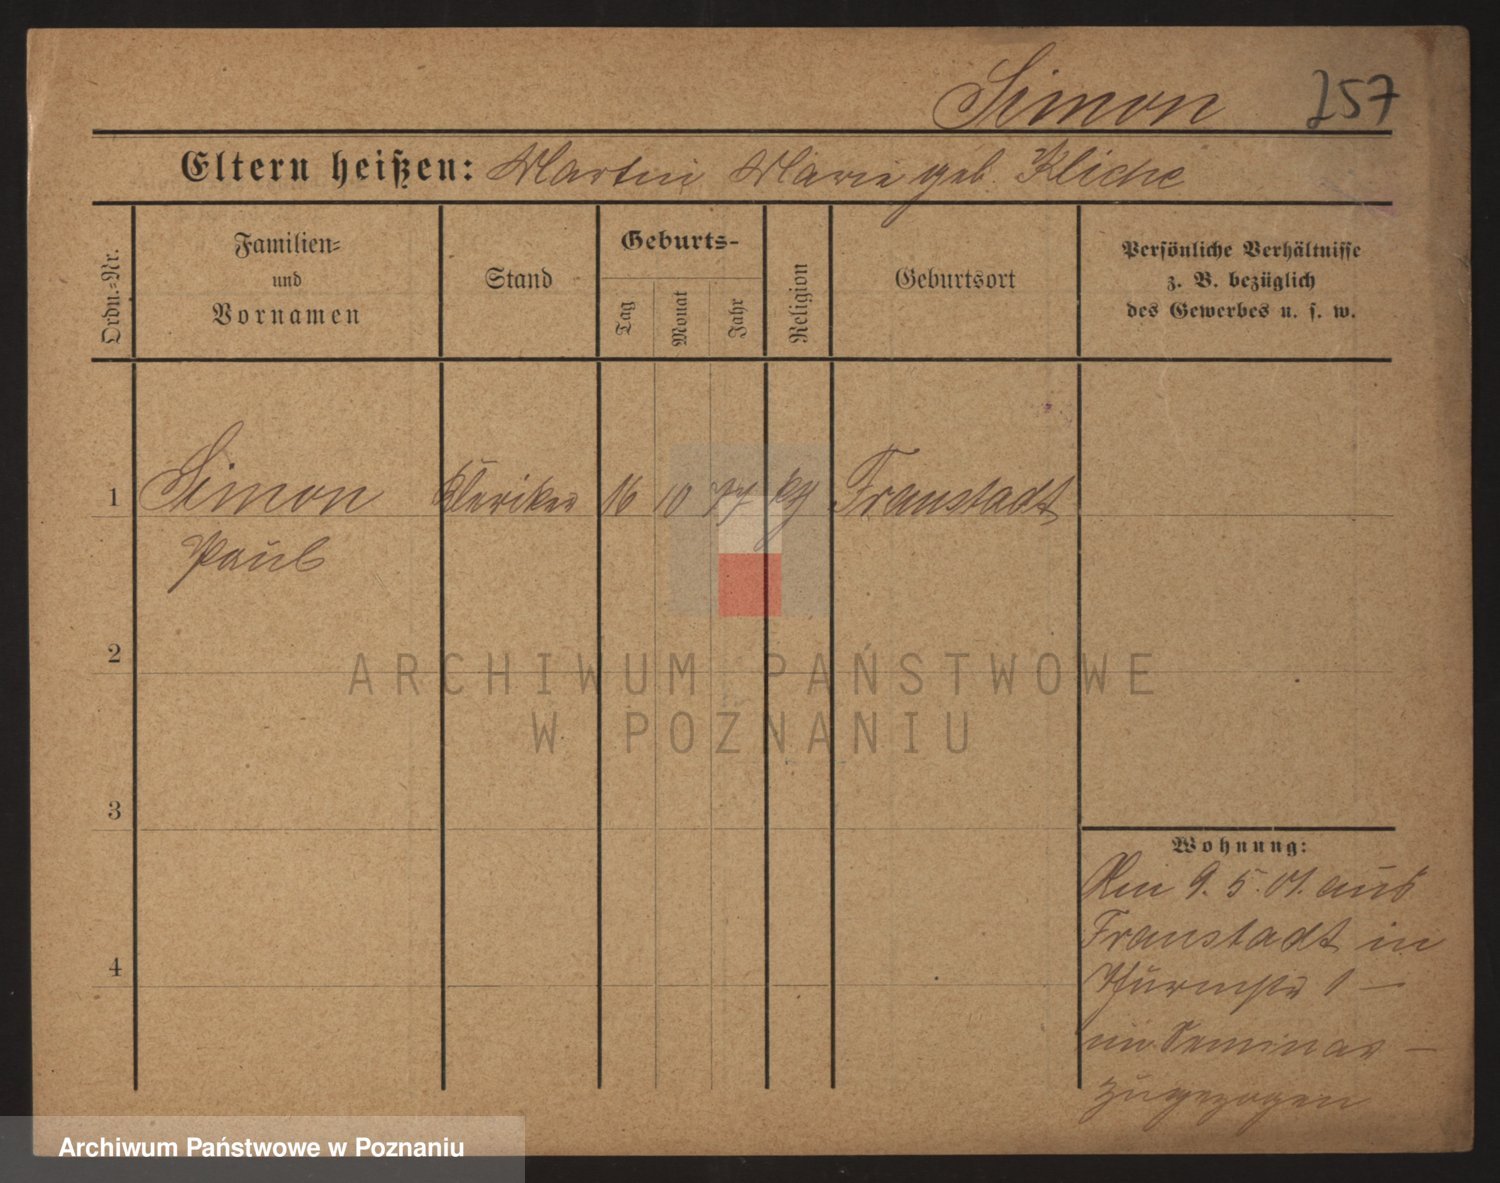 Simon 257
Eltern heißen: Martin Marie geb. Kliche
Ordn.-Nr.
Familien-
und
Vornamen
Stand
Geburts-
Tag
Monat
Jahr
Religion
Geburtsort
Persönliche Verhältnisse
z. B. bezüglich
des Gewerbes u. s. w.
1 Simon Kleriker 16 10 77 kg Fraustadt
Paul
2
ARCHIWUM PAŃSTWOWE
W POZNANIU
3
Wohnung:
Am 9. 5. 01. aus
Fraustadt in
4
Thurmstr 1 —
im Seminar —
zugezogen
Archiwum Państwowe w Poznaniu